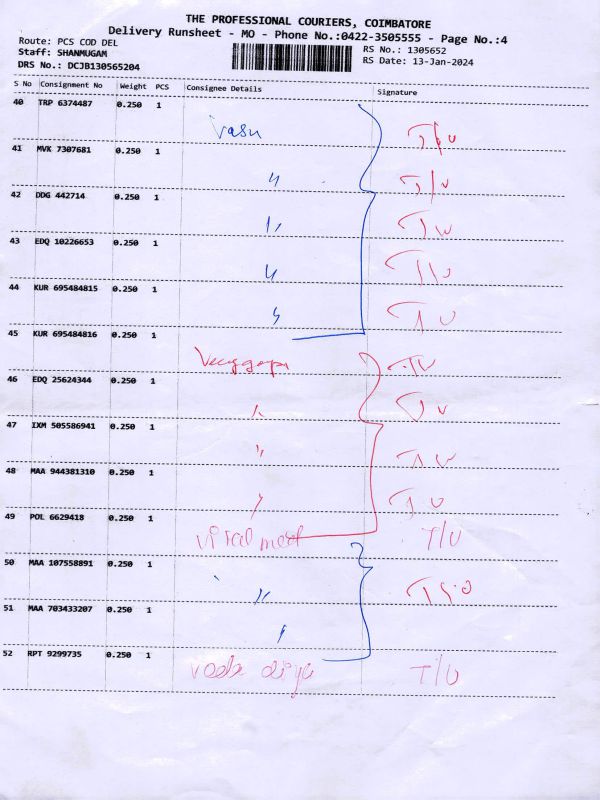 THE PROFESSIONAL COURIERS, COIMBATORE
Delivery Runsheet - MO - Phone No.:0422-3505555 - Page No.:4
Route: PCS COD DEL
Staff: SHANMUGAM
DRS No.: DCJB130565204
RS No.: 1305652
RS Date: 13-Jan-2024
S No Consignment No Weight PCS Consignee Details Signature
40 TRP 6374487 0.250 1
Vasu T/U
41 MVK 7307681 0.250 1
" T/U
42 DDG 442714 0.250 1
" TU
43 EDQ 10226653 0.250 1
" T/U
44 KUR 695484815 0.250 1
" TU
45 KUR 695484816 0.250 1
TU
46 EDQ 25624344 0.250 1
" TU
47 IXM 505586941 0.250 1
" TU
48 MAA 944381310 0.250 1
" TU
49 POL 6629418 0.250 1
T/U
50 MAA 107558891 0.250 1
"
51 MAA 703433207 0.250 1
"
52 RPT 9299735 0.250 1
T/U